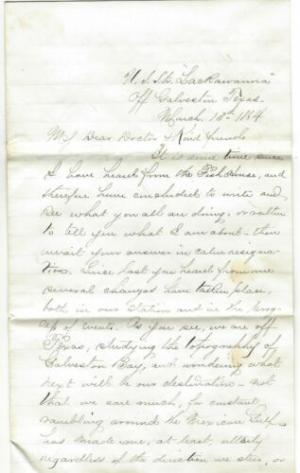 U.S.S. "Lackawanna"
Off Galveston Texas.
March 10th 1864
My Dear Doctor & Kind friend
It is some time since
I have heard from the
and
therefore have concluded to write and
see what you all are doing, or rather
to tell you what I am about - then
await your answer in calm resigna-
tion. Since last you heard from me
several changes have taken place,
both in our station and in the prog-
ress of events. As you see, we are off
Texas, studying the topography of
Galveston Bay, and wondering what
next will be our destination - not
that we care much, for constant
rambling around the Mexican Gulf
has made one, at least, utterly
regardless of the direction we steer, or